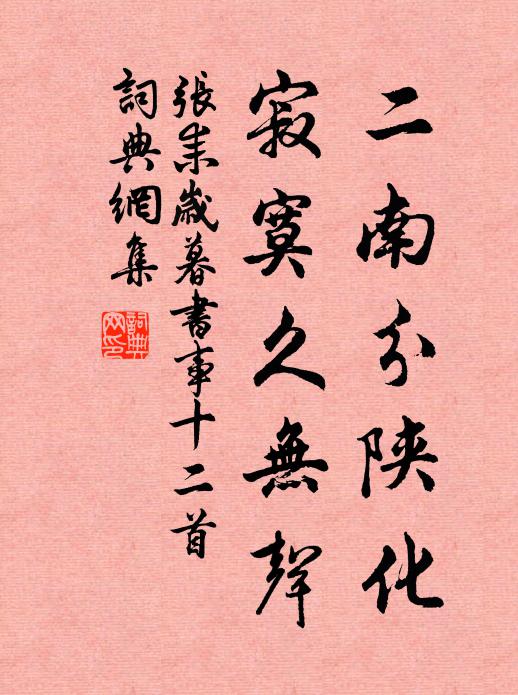 二南分陝化
寂寞久無聲
張耒歲暮書事十二首
詞典網集
詞典網印